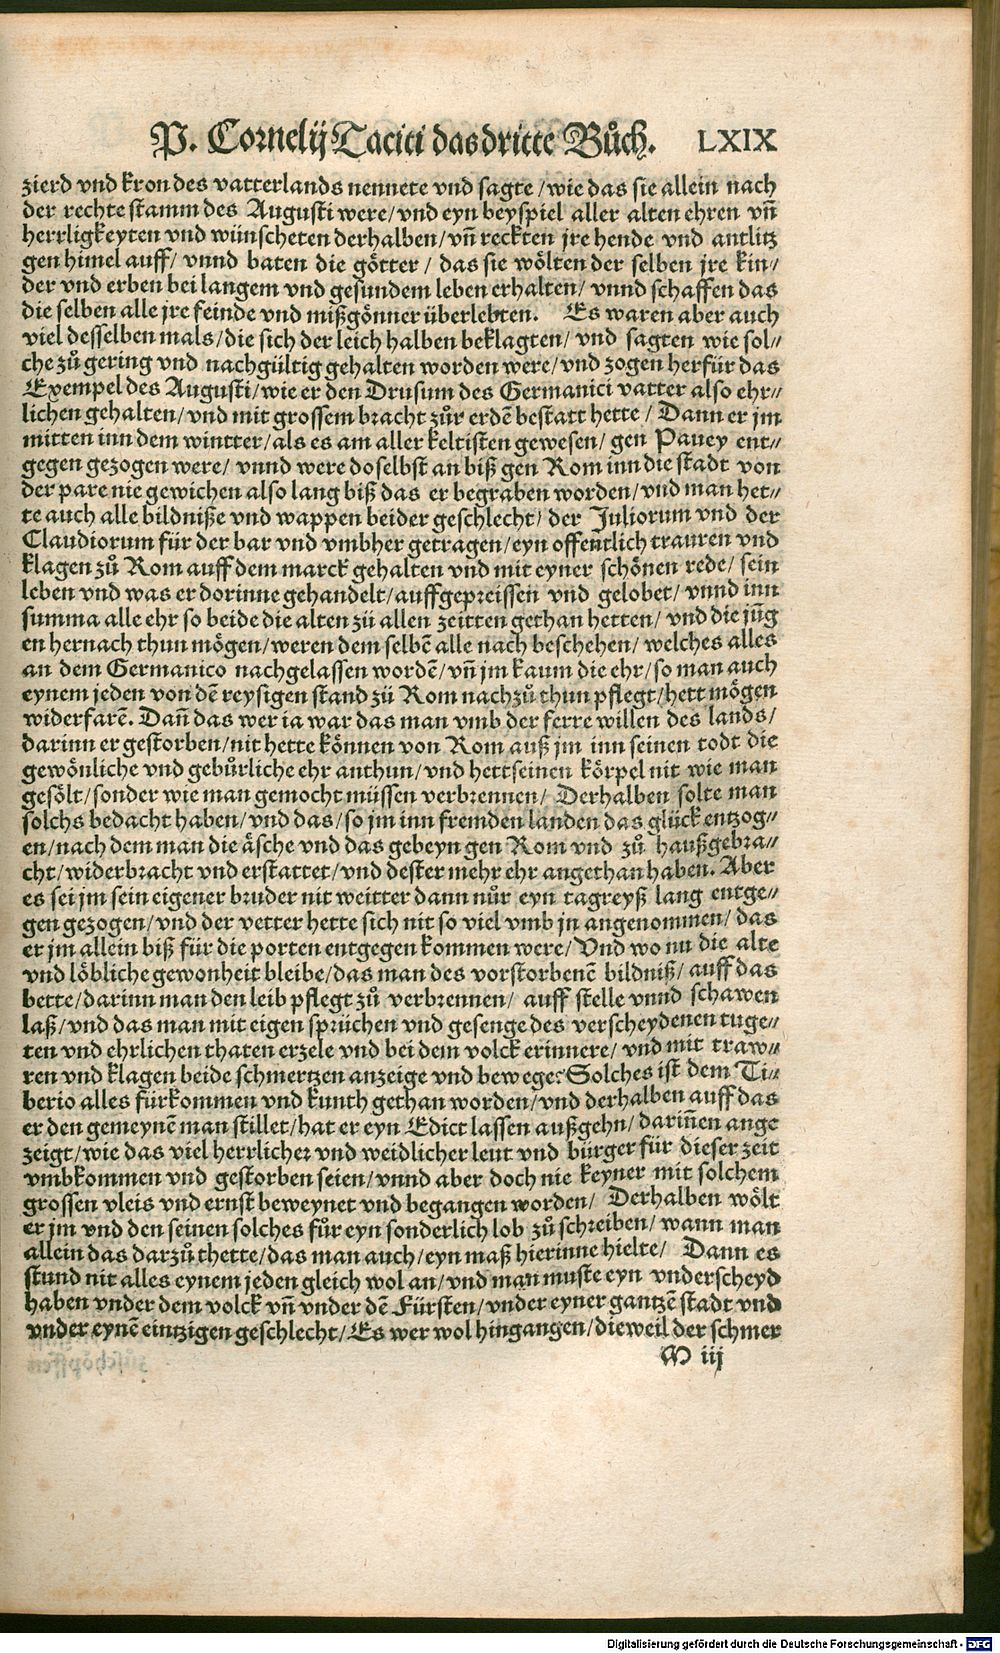 P. Cornelij Taciti das dritte Bůch. LXIX
zierd vnd kron des vatterlands nennete vnd sagte / wie das sie allein nach
der rechte stamm des Augusti were / vnd eyn beyspiel aller alten ehren vñ
herrligkeyten vnd wünscheten derhalben / vñ reckten jre hende vnd antlitz
gen himel auff / vnnd baten die götter / das sie wölten der selben jre kin//
der vnd erben bei langem vnd gesundem leben erhalten / vnnd schaffen das
die selben alle jre feinde vnd mißgönner überlebten. Es waren aber auch
viel desselben mals / die sich der leich halben beklagten / vnd sagten wie sol//
che zů gering vnd nachgültig gehalten worden were / vnd zogen herfür das
Exempel des Augusti / wie er den Drusum des Germanici vatter also ehr//
lichen gehalten / vnd mit grossem bracht zůr erdē bestatt hette / Dann er jm
mitten inn dem wintter / als es am aller keltisten gewesen / gen Pauey ent//
gegen gezogen were / vnnd were doselbst an biß gen Rom inn die stadt von
der pare nie gewichen also lang biß das er begraben worden / vnd man het//
te auch alle bildniße vnd wappen beider geschlecht / der Juliorum vnd der
Claudiorum für der bar vnd vmbher getragen / eyn offentlich trauren vnd
klagen zů Rom auff dem marck gehalten vnd mit eyner schönen rede / sein
leben vnd was er dorinne gehandelt / auffgepreissen vnd gelobet / vnnd inn
summa alle ehr so beide die alten zü allen zeitten gethan hetten / vnd die jūg
en hernach thun mögen / weren dem selbē alle nach beschehen / welches alles
an dem Germanico nachgelassen wordē / vñ jm kaum die ehr / so man auch
eynem jeden von dē reysigen stand zü Rom nachzů thun pflegt / hett mögen
widerfarē. Dañ das wer ia war das man vmb der ferre willen des lands /
darinn er gestorben / nit hette können von Rom auß jm inn seinen todt die
gewönliche vnd gebůrliche ehr anthun / vnd hett seinen körpel nit wie man
gesölt / sonder wie man gemocht müssen verbrennen / Derhalben solte man
solchs bedacht haben / vnd das / so jm inn fremden landen das glück entzog//
en / nach dem man die äsche vnd das gebeyn gen Rom vnd zů haußgebra//
cht / widerbracht vnd erstattet / vnd dester mehr ehr angethan haben. Aber
es sei jm sein eigener bruder nit weitter dann nůr eyn tagreyß lang entge//
gen gezogen / vnd der vetter hette sich nit so viel vmb jn angenommen / das
er jm allein biß für die porten entgegen kommen were / Vnd wo nu die alte
vnd löbliche gewonheit bleibe / das man des vorstorbenē bildniß / auff das
bette / darinn man den leib pflegt zů verbrennen / auff stelle vnnd schawen
laß / vnd das man mit eigen sprüchen vnd gesenge des verscheydenen tuge//
ten vnd ehrlichen thaten erzele vnd bei dem volck erinnere / vnd mit traw//
ren vnd klagen beide schmertzen anzeige vnd bewege: Solches ist dem Ti//
berio alles fürkommen vnd kunth gethan worden / vnd derhalben auff das
er den gemeynē man stillet / hat er eyn Edict lassen außgehn / dariñen ange
zeigt / wie das viel herrlicher vnd weidlicher leut vnd bürger für dieser zeit
vmbkommen vnd gestorben seien / vnnd aber doch nie keyner mit solchem
grossen vleis vnd ernst beweynet vnd begangen worden / Derhalben wölt
er jm vnd den seinen solches fůr eyn sonderlich lob zů schreiben / wann man
allein das darzů thette / das man auch / eyn maß hierinne hielte / Dann es
stund nit alles eynem jeden gleich wol an / vnd man muste eyn vnderscheyd
haben vnder dem volck vñ vnder dē Fürsten / vnder eyner gantzē stadt vnd
vnder eynē eintzigen geschlecht / Es wer wol hingangen / dieweil der schmer
M iij
Digitalisierung gefördert durch die Deutsche Forschungsgemeinschaft - DFG